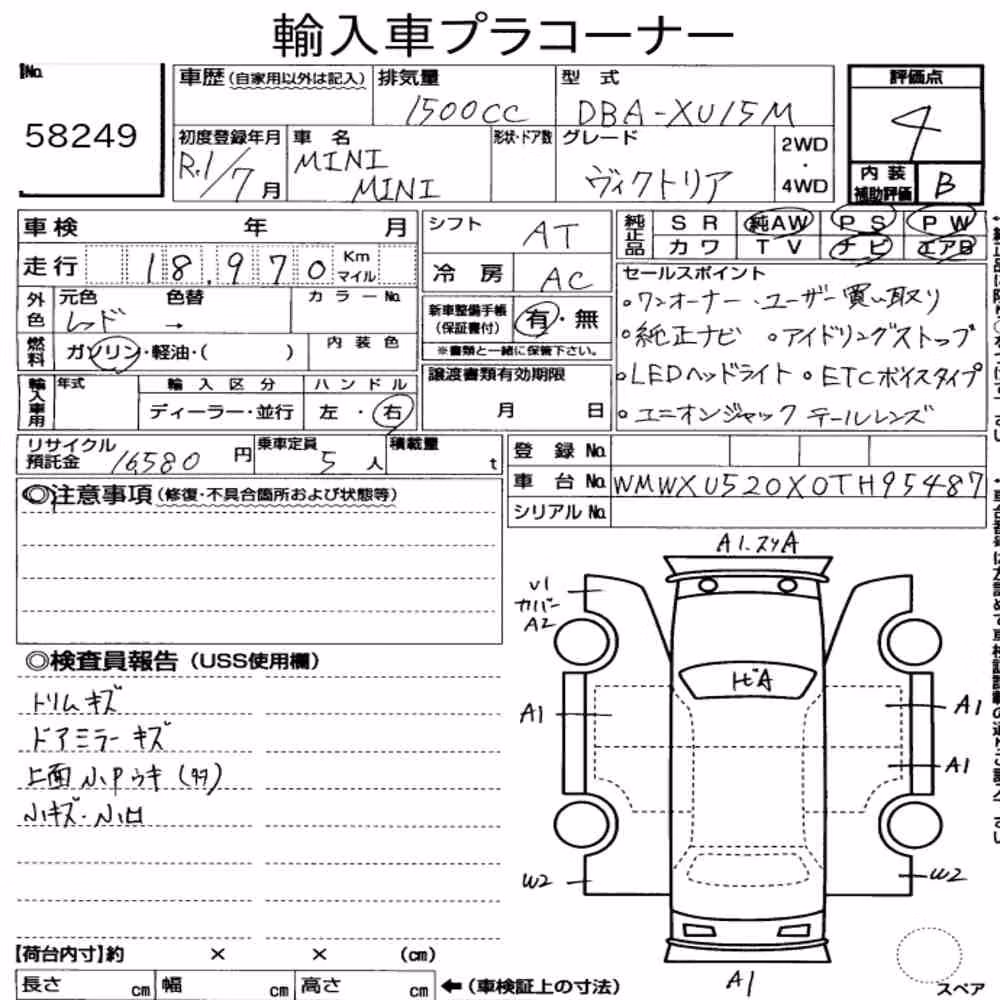 輸入車プラコーナー
No.
58249
車歴(自家用以外は記入) 排気量 型式
1500cc DBA-XU15M
評価点
4
初度登録年月 車名 形状・ドア数 グレード 2WD・4WD
R.1/7月 MINI MINI ヴィクトリア
内装補助評価 B
車検 年 月
走行 18.970 Km マイル
外色 元色 色替 カラーNo.
レッド →
燃料 ガソリン・軽油・( ) 内装色
輸入車用 年式 輸入区分 ハンドル
ディーラー・並行 左・右
シフト AT
冷房 AC
新車整備手帳(保証書付) 有・無
※書類と一緒に保管下さい。
譲渡書類有効期限
月 日
純正品 SR 純AW PS PW
カワ TV ナビ エアB
セールスポイント
○ワンオーナー、ユーザー買い取り
○純正ナビ ○アイドリングストップ
○LEDヘッドライト ○ETCボイスタイプ
○ユニオンジャックテールレンズ
リサイクル預託金 16580円 乗車定員 5人 積載量 t
登録No.
車台No. WMWXU520X0TH95487
シリアルNo.
◎注意事項(修復・不具合箇所および状態等)
◎検査員報告(USS使用欄)
トリムキズ
ドアミラーキズ
上面小Pウキ(タタ)
小キズ・小凹
A1.スリA
U1
カバー
A2
ヒ゛A
A1
A1
A1
W2
W2
A1
スペア
【荷台内寸】約 × × (cm)
長さ cm 幅 cm 高さ cm ←(車検証上の寸法)